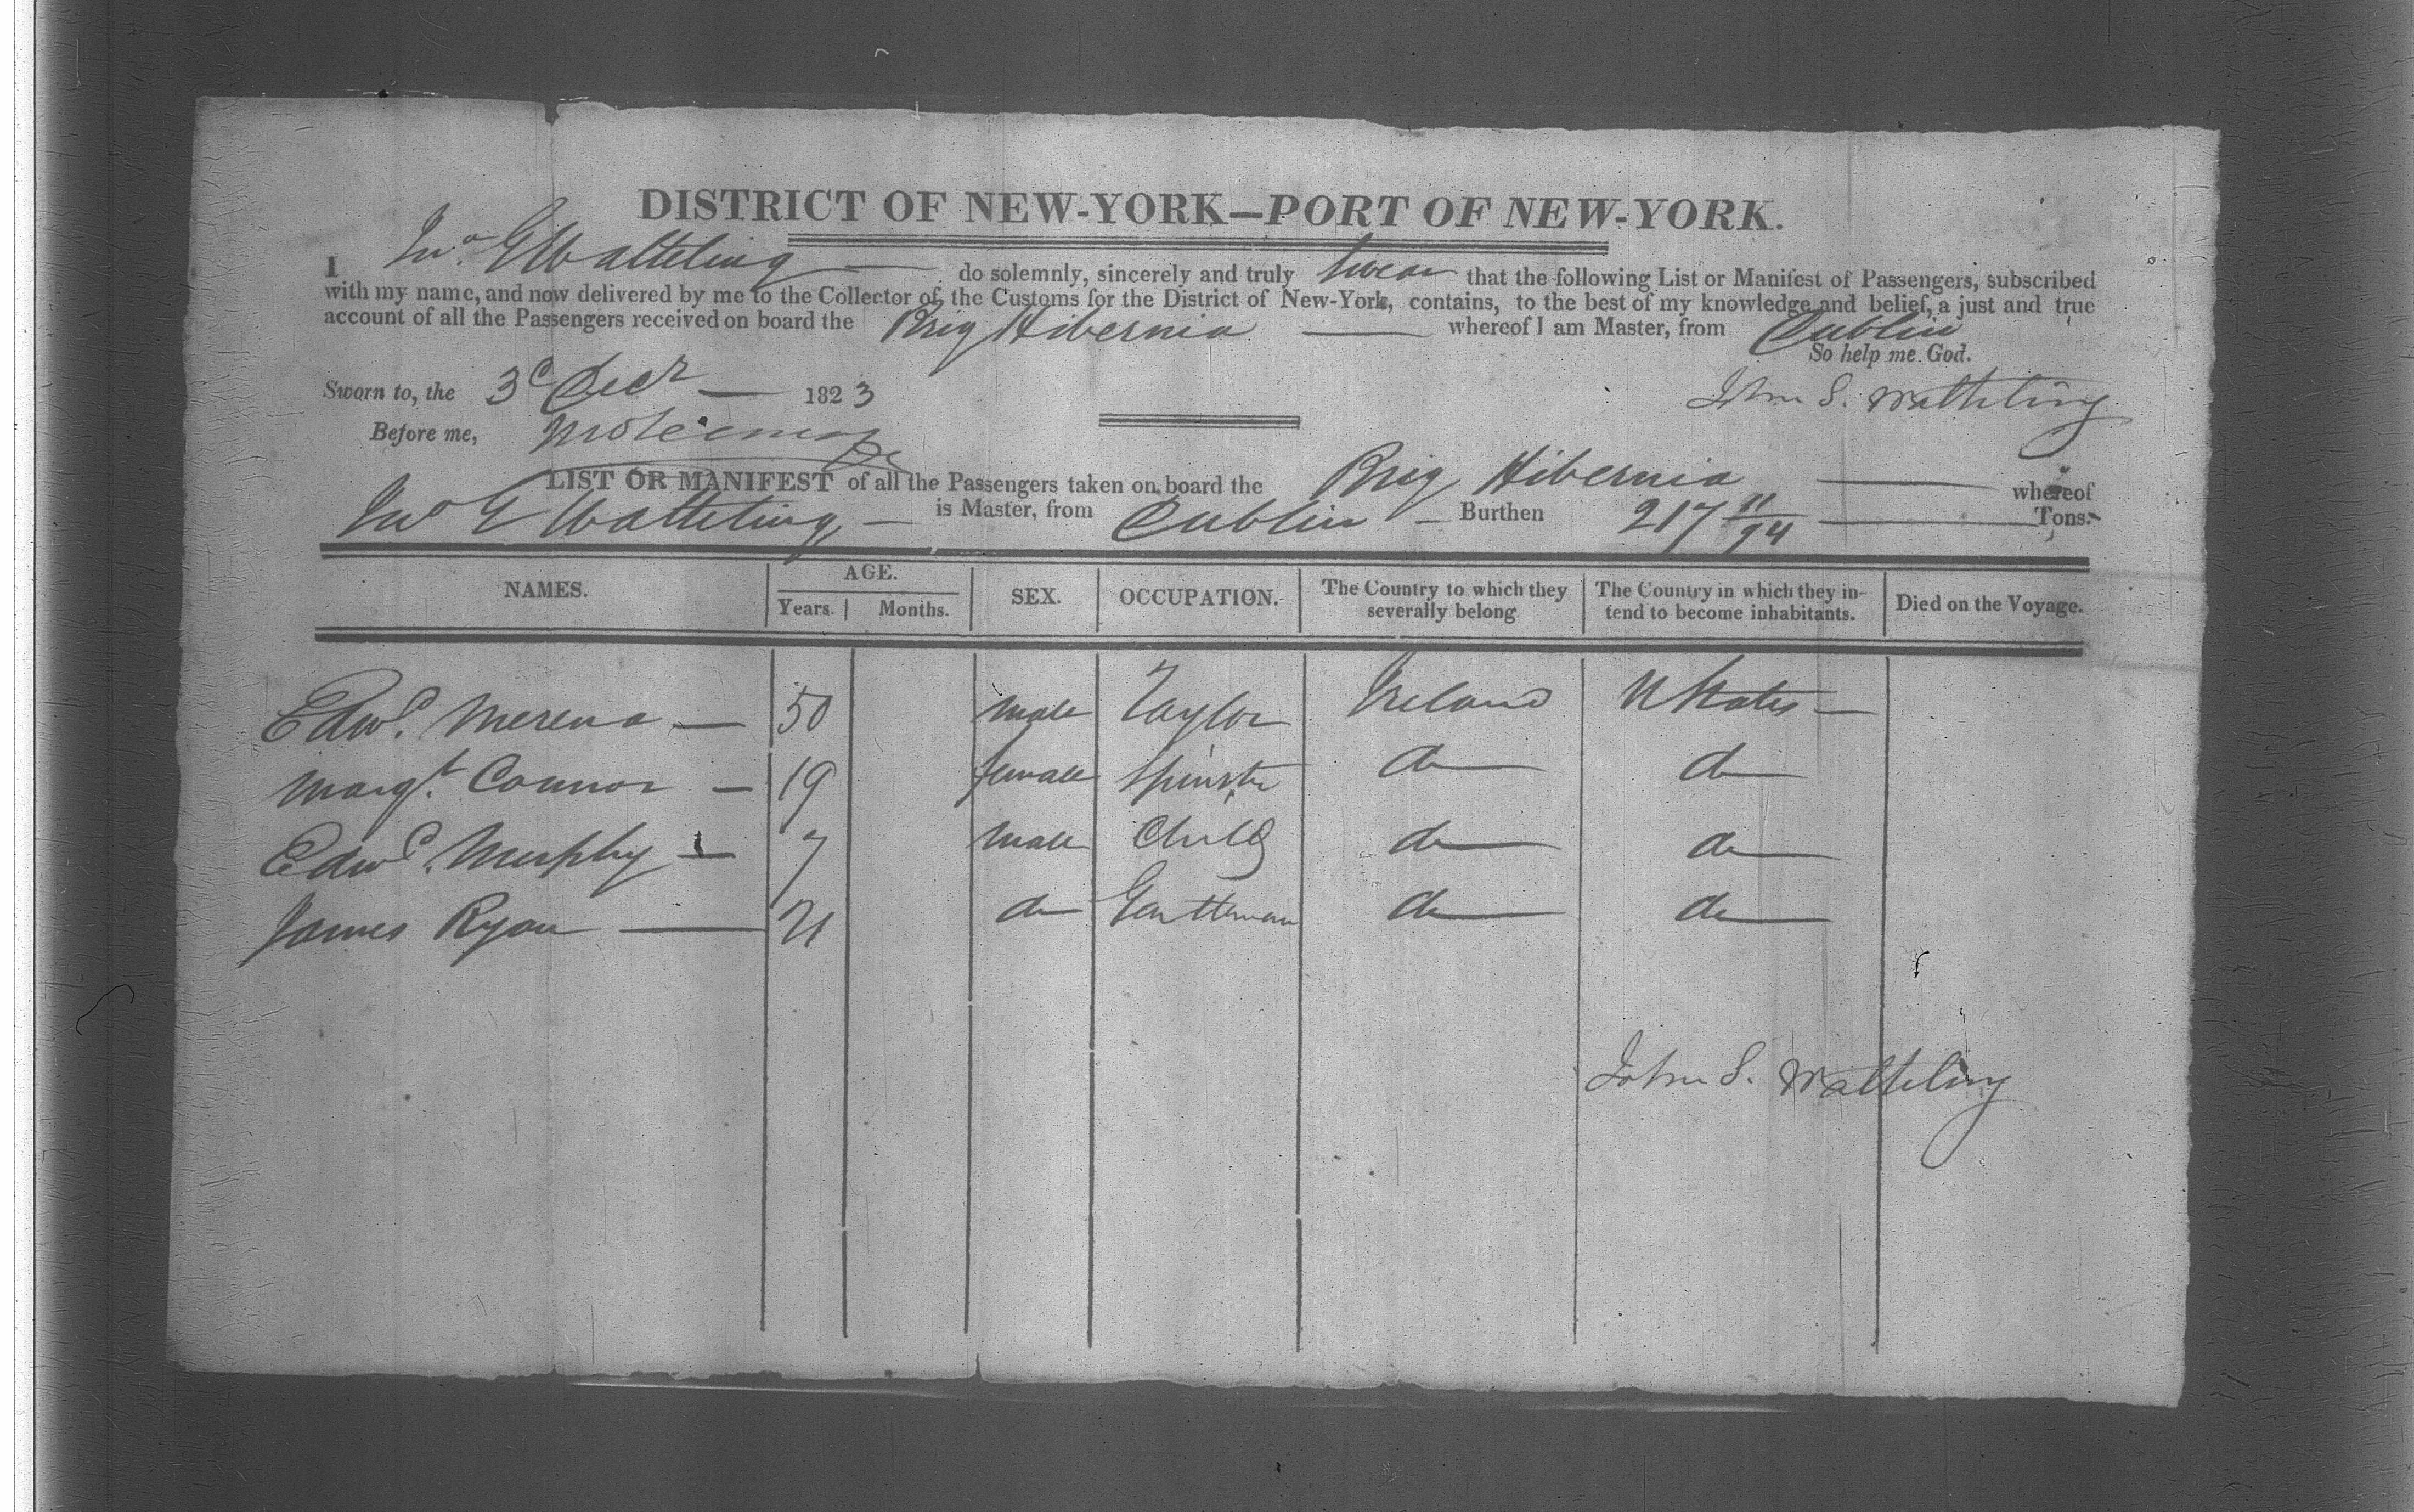 DISTRICT OF NEW-YORK—PORT OF NEW-YORK.
I Jno. G Watteling — do solemnly, sincerely and truly swear that the following List or Manifest of Passengers, subscribed
with my name, and now delivered by me to the Collector of the Customs for the District of New-York, contains, to the best of my knowledge and belief, a just and true
account of all the Passengers received on board the Brig Hibernia — whereof I am Master, from Dublin
So help me God.
Sworn to, the 3d Decr — 1823
John S. Watteling
Before me,
LIST OR MANIFEST of all the Passengers taken on board the Brig Hibernia — whereof
Jno G Watteling, — is Master, from Dublin — Burthen 217 11/94 — Tons.
NAMES. AGE. Years. Months. SEX. OCCUPATION. The Country to which they severally belong The Country in which they intend to become inhabitants. Died on the Voyage.
Edwd. Merena — 50 male Taylor Ireland U States —
Margt. Connor — 19 female Spinster do do
Edwd. Murphy — 7 male Child do do
James Ryan — 21 do Gentleman do do
John S. Watteling